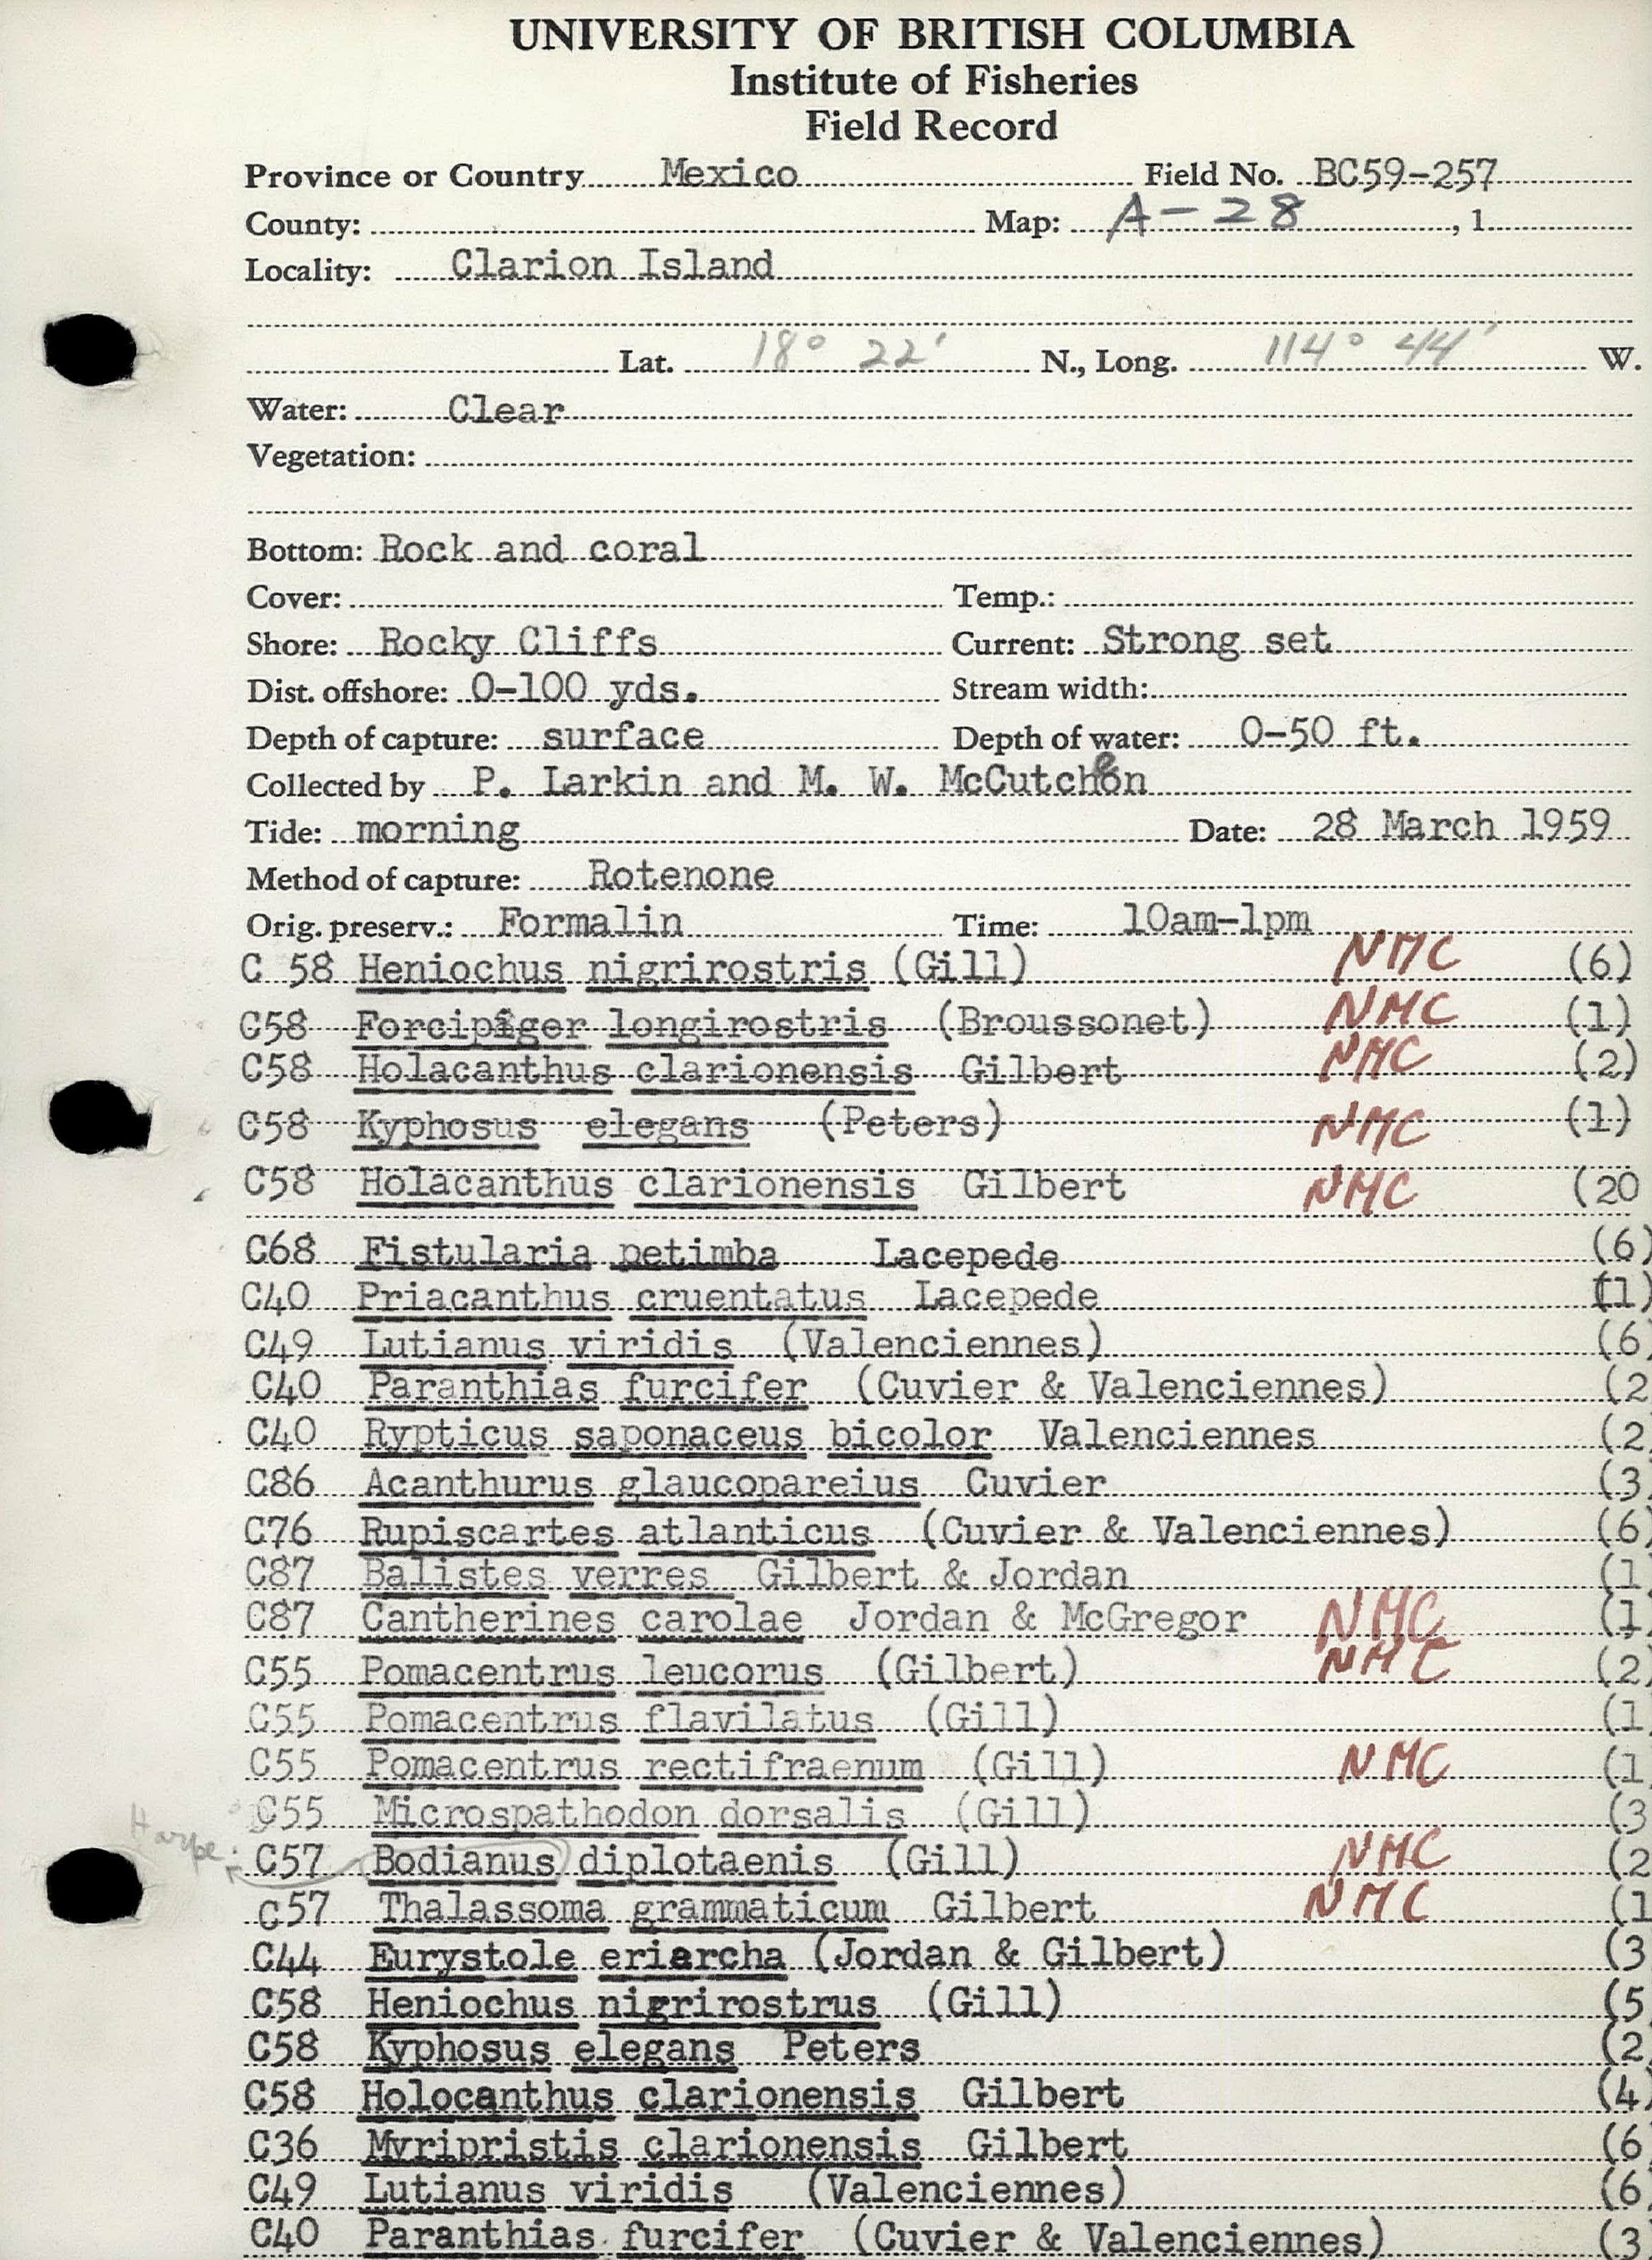 UNIVERSITY OF BRITISH COLUMBIA
Institute of Fisheries
Field Record
Province or Country Mexico Field No. BC59-257
County: Map: A-28 , 1
Locality: Clarion Island
Lat. 18° 22' N., Long. 114° 44' W.
Water: Clear
Vegetation:
Bottom: Rock and coral
Cover: Temp.:
Shore: Rocky Cliffs Current: Strong set
Dist. offshore: 0-100 yds. Stream width:
Depth of capture: surface Depth of water: 0-50 ft.
Collected by P. Larkin and M. W. McCutchen
Tide: morning Date: 28 March 1959
Method of capture: Rotenone
Orig. preserv.: Formalin Time: 10am-1pm
C 58 Heniochus nigrirostris (Gill) NMC (6)
C58 Forcipiger longirostris (Broussonet) NMC (1)
C58 Holacanthus clarionensis Gilbert NMC (2)
C58 Kyphosus elegans (Peters) NMC (1)
C58 Holacanthus clarionensis Gilbert NMC (20
C68 Fistularia petimba Lacepede (6)
C40 Priacanthus cruentatus Lacepede (1)
C49 Lutianus viridis (Valenciennes) (6)
C40 Paranthias furcifer (Cuvier & Valenciennes) (2
C40 Rypticus saponaceus bicolor Valenciennes (2
C86 Acanthurus glaucopareius Cuvier (3
C76 Rupiscartes atlanticus (Cuvier & Valenciennes) (6)
C87 Balistes verres Gilbert & Jordan (1
C87 Cantherines carolae Jordan & McGregor NMC (1
C55 Pomacentrus leucorus (Gilbert) NMC (2)
C55 Pomacentrus flavilatus (Gill) (1
C55 Pomacentrus rectifraenum (Gill) NMC (1
C55 Microspathodon dorsalis (Gill) (3
Harpe C57 Bodianus diplotaenis (Gill) NMC (2
C57 Thalassoma grammaticum Gilbert NMC (1
C44 Eurystole eriarcha (Jordan & Gilbert) (3
C58 Heniochus nigrirostrus (Gill) (5
C58 Kyphosus elegans Peters (2
C58 Holocanthus clarionensis Gilbert (4)
C36 Myripristis clarionensis Gilbert (6
C49 Lutianus viridis (Valenciennes) (6
C40 Paranthias furcifer (Cuvier & Valenciennes) (3